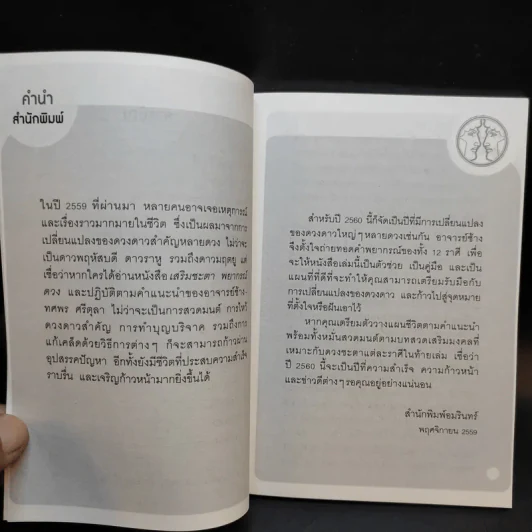 คำนำ
สำนักพิมพ์
ในปี 2559 ที่ผ่านมา หลายคนอาจเจอเหตุการณ์
และเรื่องราวมากมายในชีวิต ซึ่งเป็นผลมาจากการ
เปลี่ยนแปลงของดวงดาวสำคัญหลายดวง ไม่ว่าจะ
เป็นดาวพฤหัสบดี ดาวราหู รวมถึงดาวมฤตยู แต่
เชื่อว่าหากใครได้อ่านหนังสือ เสริมชะตา พยากรณ์
ดวง และปฏิบัติตามคำแนะนำของอาจารย์ช้าง-
ทศพร ศรีตุลา ไม่ว่าจะเป็นการสวดมนต์ การไหว้
ดวงดาวสำคัญ การทำบุญบริจาค รวมถึงการ
แก้เคล็ดด้วยวิธีการต่างๆ ก็จะสามารถก้าวผ่าน
อุปสรรคปัญหา อีกทั้งยังมีชีวิตที่ประสบความสำเร็จ
ราบรื่น และเจริญก้าวหน้ามากยิ่งขึ้นได้
สำหรับปี 2560 นี้ก็จัดเป็นปีที่มีการเปลี่ยนแปลง
ของดวงดาวใหญ่ๆ หลายดวงเช่นกัน อาจารย์ช้าง
จึงตั้งใจถ่ายทอดคำพยากรณ์ของทั้ง 12 ราศี เพื่อ
จะให้หนังสือเล่มนี้เป็นตัวช่วย เป็นคู่มือ และเป็น
แผนที่ที่ดีที่จะทำให้คุณสามารถเตรียมรับมือกับ
การเปลี่ยนแปลงของดวงดาว และก้าวไปสู่จุดหมาย
ที่ตั้งใจหรือฝันเอาไว้
หากคุณเตรียมตัววางแผนชีวิตตามคำแนะนำ
พร้อมทั้งหมั่นสวดมนต์ตามบทสวดเสริมมงคลที่
เหมาะกับดวงชะตาแต่ละราศีในท้ายเล่ม เชื่อว่า
ปี 2560 นี้จะเป็นปีที่ความสำเร็จ ความก้าวหน้า
และข่าวดีต่างๆ รอคุณอยู่อย่างแน่นอน
สำนักพิมพ์อมรินทร์
พฤศจิกายน 2559